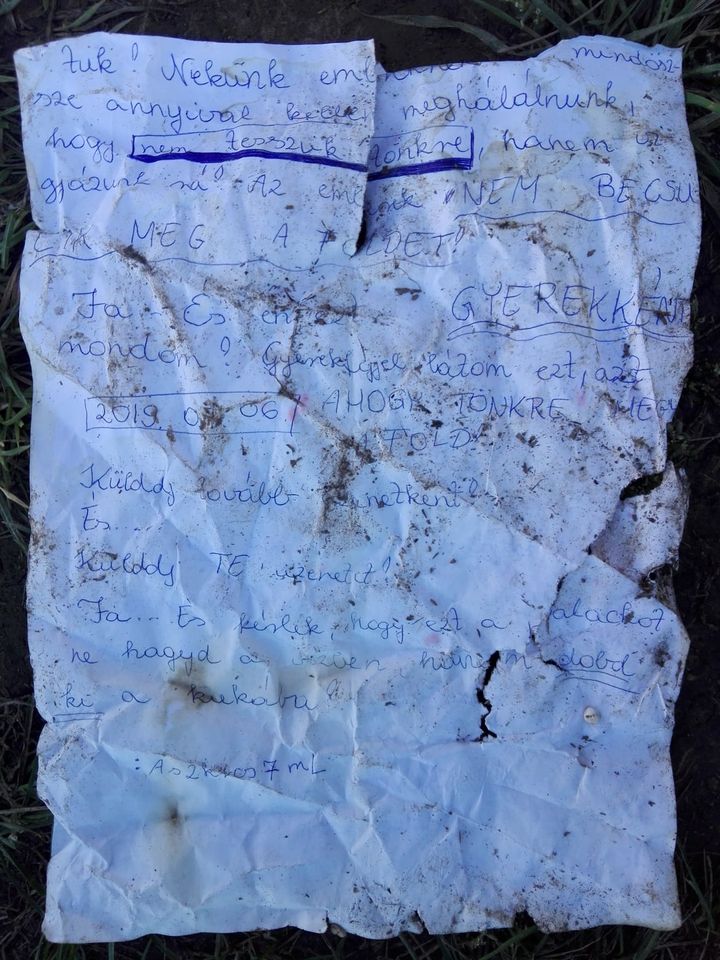 tük! Nekünk mindösz-
sze annyival kell meghálálnunk,
hogy nem tesszük tönkre, hanem vi
gyázunk rá! Az "NEM BECSÜ
LIK MEG A FÖLDET!"
Ja... És én ezt GYEREKKÉNT
mondom! Gyerekfejjel látom ezt, azt
2019. 06 AHOGY TÖNKRE MEGY
A FÖLD!
Küldd tovább üzenetként!
És...
Küldd TE üzenetet!
Ja... És kérlek, hogy ezt a palackot
ne hagyd a vízben, hanem dobd
ki a kukába!